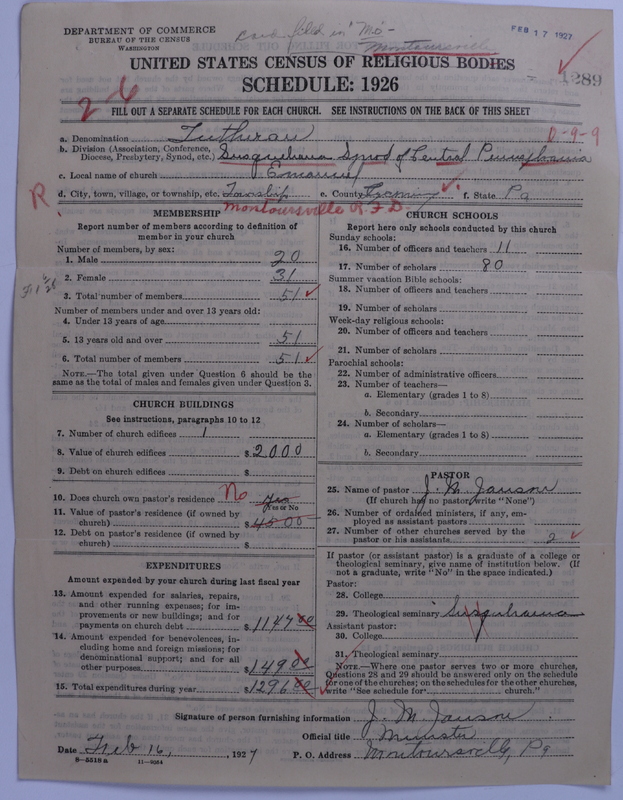 DEPARTMENT OF COMMERCE
BUREAU OF THE CENSUS
WASHINGTON
filed in "Mo"-
Montoursville
FEB 17 1927
1289
UNITED STATES CENSUS OF RELIGIOUS BODIES
SCHEDULE: 1926
26
FILL OUT A SEPARATE SCHEDULE FOR EACH CHURCH. SEE INSTRUCTIONS ON THE BACK OF THIS SHEET
0-9-9
a. Denomination Lutheran
b. Division (Association, Conference, Diocese, Presbytery, Synod, etc.) Susquehanna Synod of Central Pennsylvania
c. Local name of church Emanuel
R
d. City, town, village, or township, etc. Township e. County Lycoming f. State Pa
Montoursville R.F.D.
MEMBERSHIP
Report number of members according to definition of
member in your church
Number of members, by sex:
1. Male 20
2. Female 31
3. Total number of members 51
Number of members under and over 13 years old:
4. Under 13 years of age
5. 13 years old and over 51
6. Total number of members 51
NOTE.—The total given under Question 6 should be the
same as the total of males and females given under Question 3.
CHURCH BUILDINGS
See instructions, paragraphs 10 to 12
7. Number of church edifices 1
8. Value of church edifices $2000
9. Debt on church edifices $
10. Does church own pastor's residence No Yes
Yes or No
11. Value of pastor's residence (if owned by
church) $4500
12. Debt on pastor's residence (if owned by
church) $
EXPENDITURES
Amount expended by your church during last fiscal year
13. Amount expended for salaries, repairs,
and other running expenses; for im-
provements or new buildings; and for
payments on church debt $1147 00
14. Amount expended for benevolences, in-
cluding home and foreign missions; for
denominational support; and for all
other purposes $149 00
15. Total expenditures during year $1296 00
CHURCH SCHOOLS
Report here only schools conducted by this church
Sunday schools:
16. Number of officers and teachers 11
17. Number of scholars 80
Summer vacation Bible schools:
18. Number of officers and teachers
19. Number of scholars
Week-day religious schools:
20. Number of officers and teachers
21. Number of scholars
Parochial schools:
22. Number of administrative officers
23. Number of teachers—
a. Elementary (grades 1 to 8)
b. Secondary
24. Number of scholars—
a. Elementary (grades 1 to 8)
b. Secondary
PASTOR
25. Name of pastor J. M. Janson
(If church has no pastor, write "None")
26. Number of ordained ministers, if any, em-
ployed as assistant pastors
27. Number of other churches served by the
pastor or his assistants 2
If pastor (or assistant pastor) is a graduate of a college or
theological seminary, give name of institution below. (If
not a graduate, write "No" in the space indicated.)
Pastor:
28. College
29. Theological seminary Susquehanna
Assistant pastor:
30. College
31. Theological seminary
NOTE.—Where one pastor serves two or more churches,
Questions 28 and 29 should be answered only on the schedule
for one of the churches; on the schedules for the other churches,
write "See schedule for church."
Signature of person furnishing information J. M. Janson
Official title Minister
Date Feb 16, , 1927 P. O. Address Montoursville, Pa
8—5518a 11—9354